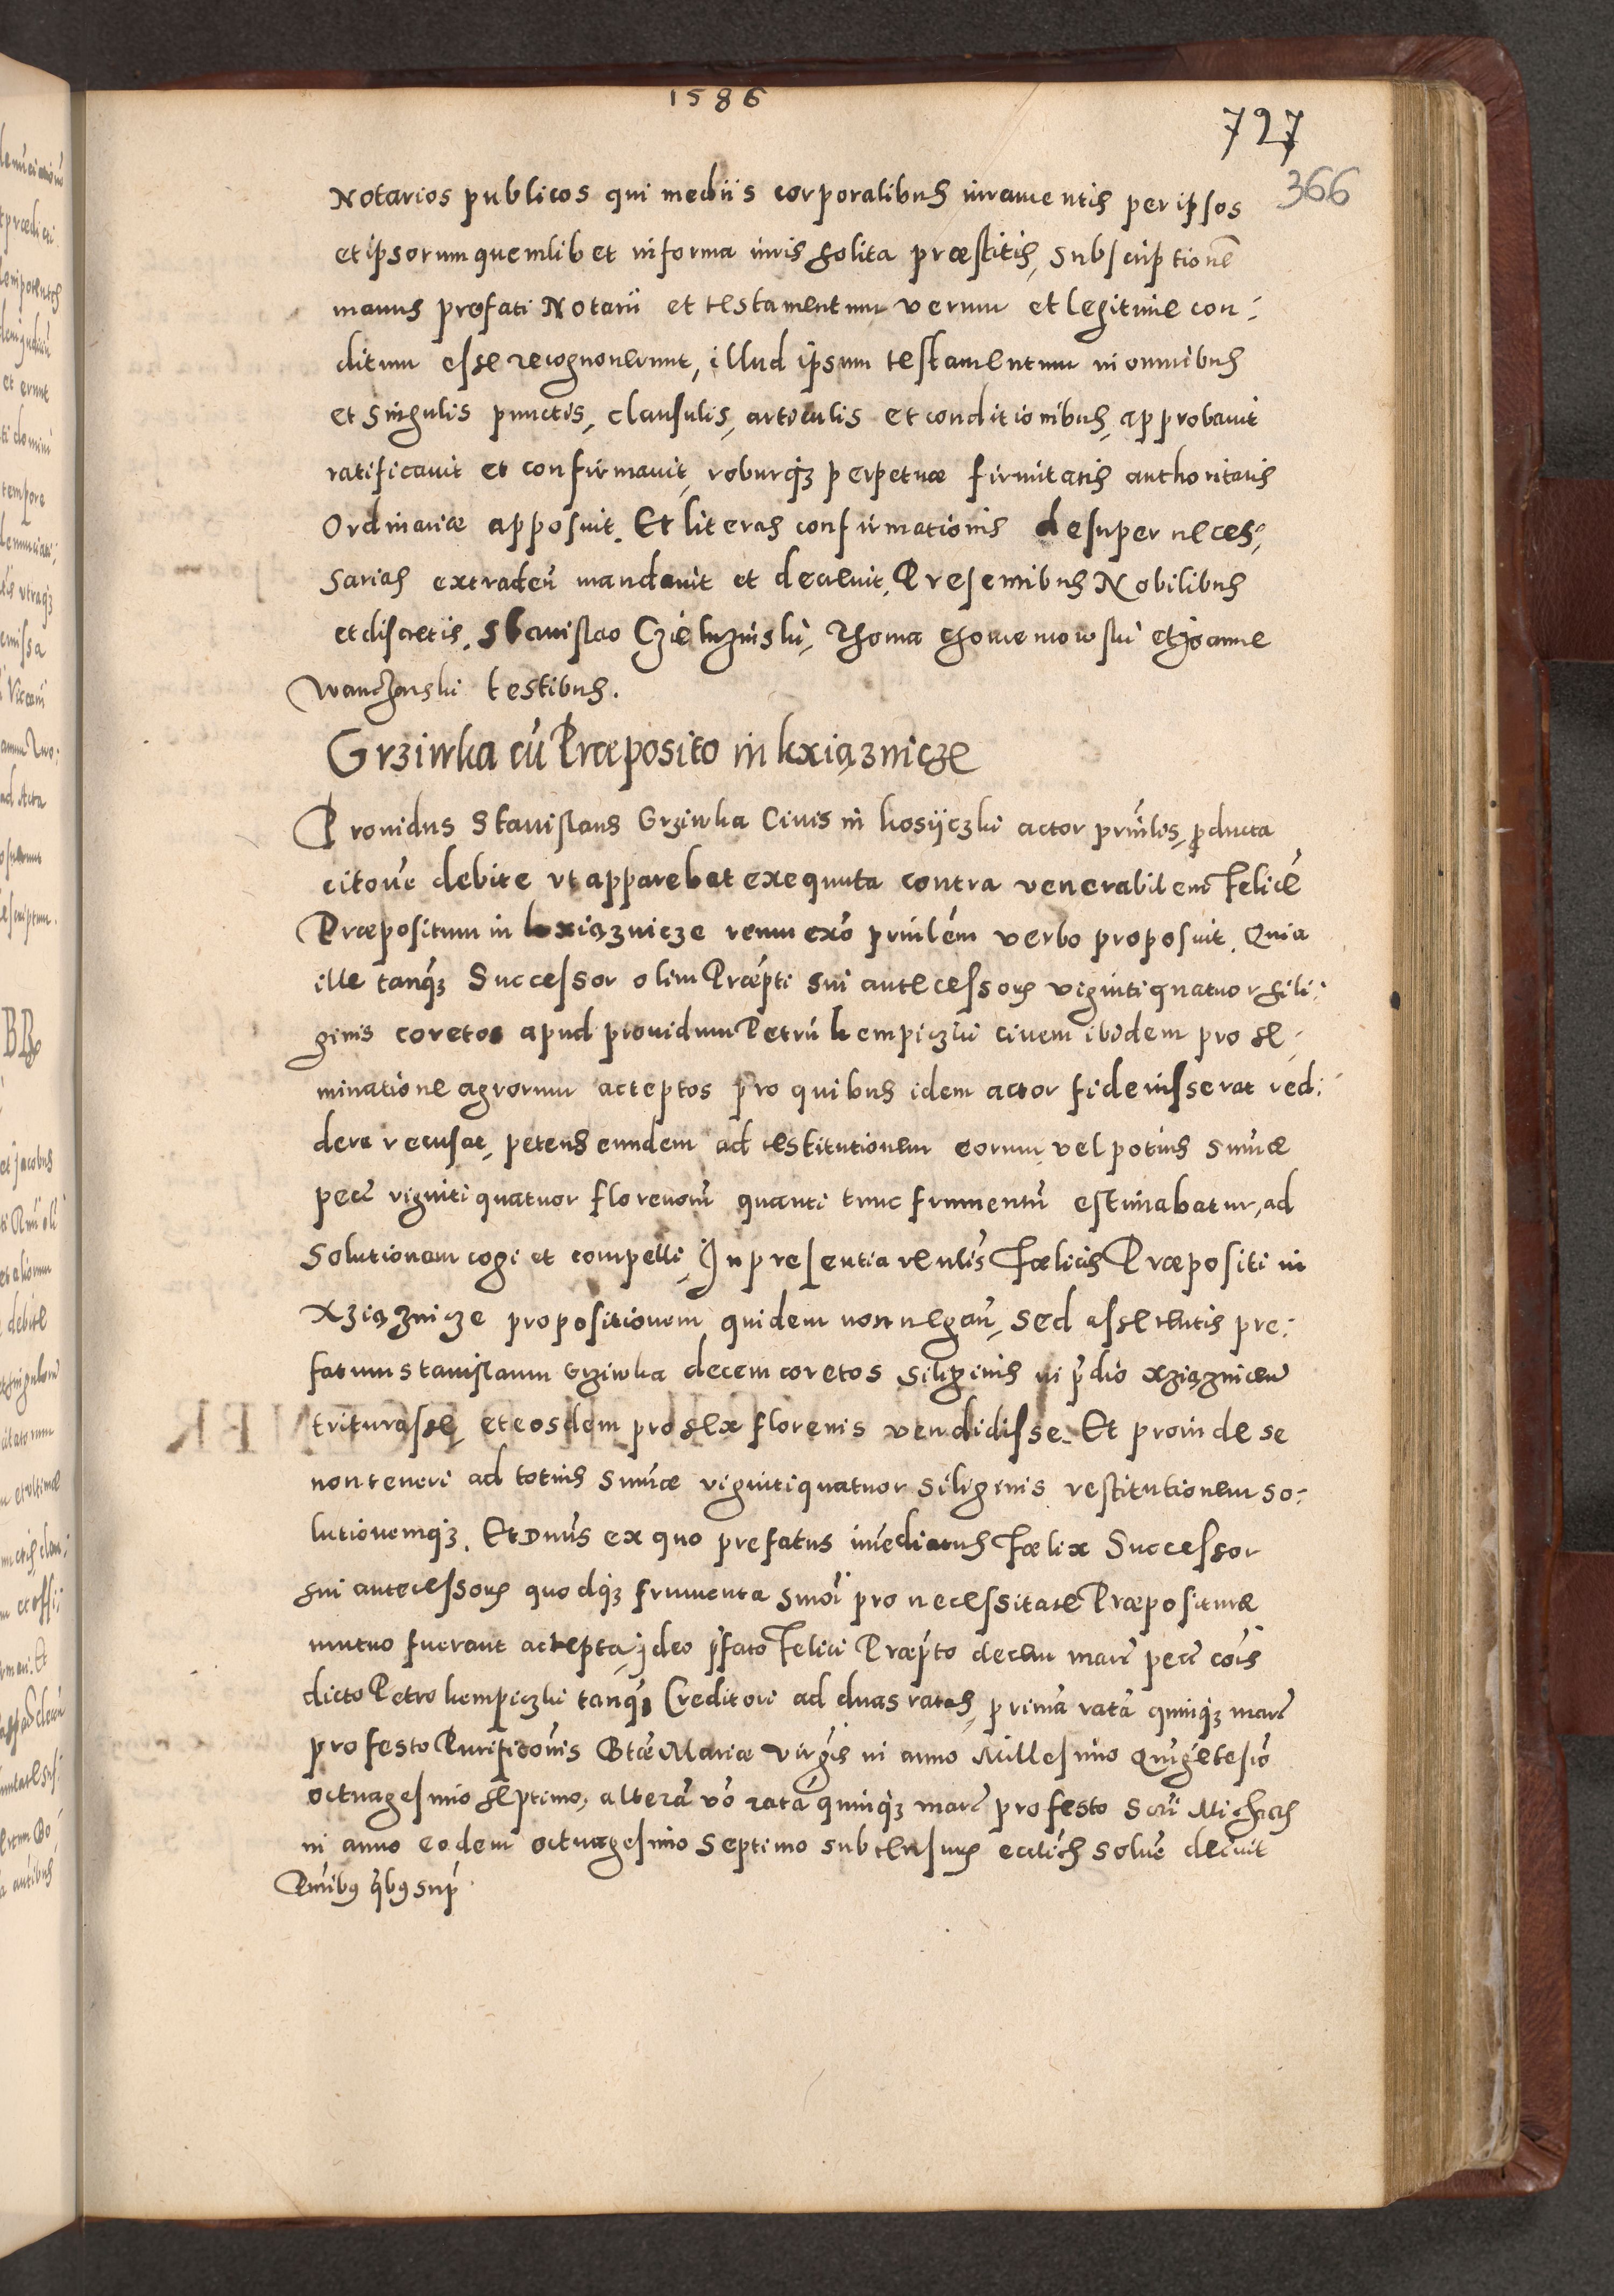 1586
727
366
Notarios publicos qui mediis corporalibus iuramentis per ipsos
et ipsorum quemlibet in forma iuris solita præstitis, subscriptionē
manus prefati Notarii et testamentum verum et legitime con:
ditum esse recognouerunt, illud ipsum testamentum in omnibus
et singulis punctis, clausulis, articulis et conditionibus, approbauit
ratificauit et confirmauit, roburq3 perpetuæ firmitatis authoritatis
Ordinariæ apposuit. Et literas confirmationis desuper neces:
sarias extradeñ mandauit et decreuit. Presentibus Nobilibus
et discretis. Stanislao Thoma et Joanne
testibus.
Grziwka cū Præposito in kxiąznicze
Prouidus Stanislaus Grziwka Ciuis in kosijczki actor prn̄lis, ꝓducta
citoñe debite vt apparebat exequuta contra venerabilem Felicē
Præpositum in kxiąznicze reum exō prn̄lem verbo proposuit. Quia
ille tanq̄3 Successor olim Præpti sui antecessoris viginti quatuor sili:
ginis coretos apud prouidum Petrū kempiczki ciuem ibidem pro se:
minatione agrorum acceptos pro quibus idem actor fideiusserat red:
dere recusat, petens eundem ad restitutionem eorum, vel potius sum̄æ
pecī viginti quatuor florenorū quanti tunc frumentū estimabatur, ad
solutionem cogi et compelli, In presentia venlis Fœlicis Præpositi in
Xziąznicze propositionem quidem non negañ, sed asserentis pre:
fatum Stanislaum Grziwka decem coretos siliginis in p̄dio
triturasse, et eosdem pro sex florenis vendidisse. Et proinde se
non teneri ad totius sum̄æ viginti quatuor siliginis restitutionem so:
lutionemq3. Et Dn̄us ex quo prefatus im̄ediatus Fœlix Successor
sui antecessoris quodq3 frumenta pro necessitate Præpositurae
mutuo fuerant accepta, ideo p̄fato Felici Præpto decem marc̄ pecī cōis
dicto Petro kempiczki tanq̄3 Creditori ad duas ratas, primā ratā quinq3 marc̄
pro festo Purificōnis Btæ Mariæ Virgīs in anno Millesimo Quīgētesīo
octuagesimo septimo, alterā vō ratā quinq3 marc̄ pro festo Scti Michaelis
in anno eodem octuagesimo septimo sub censuris ecclīcis soluē decreuit
Pn̄tibꝰ q̄bꝰ sup̄